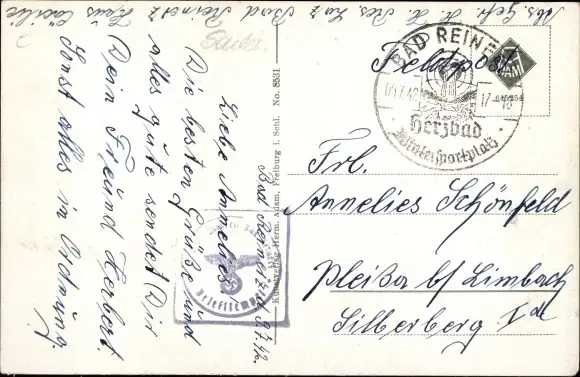 Abs. Gefr. H. H. Res. Laz. Bad Reinerz Haus Cäcilie
Bad Reinerz d. 9.7.42.
Liebe Annelies
Die besten Grüße und
alles gute sendet Dir
Dein Freund Herbert.
Sonst alles in Ordnung.
Kunstverlag Herm. Adam, Freiburg i. Schl. No. 8531
Feldpost
BAD REINERZ
09.7.42
17-18
Herzbad
Wintersportplatz
Frl.
Annelies Schönfeld
Pleißa b/ Limbach
Silberberg 1 d